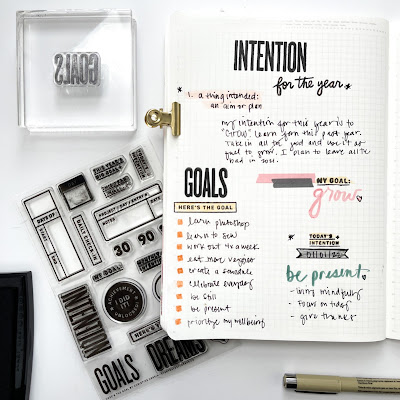 INTENTION
for the year
1. a thing intended:
an aim or plan
my intention for this year is to
"GROW". learn from this past year.
Take in all the good and use it as
fuel to grow. I plan to leave all the
bad in 2021.
GOALS
HERE'S THE GOAL
learn photoshop
learn to sew
work out 4x a week
eat more veggies
create a schedule
celebrate everyday
be still
be present
prioritize my wellbeing
MY GOAL:
grow
TODAY'S
INTENTION
01.01.22
be present
- living mindfully
- focus on today
- give thanks
GOALS
DAYS OF
DAILY CHECK-IN
THIS YEAR'S
BIG GOAL
START
NOTES
30
60
90
MY GOAL:
ACHIEVEMENT
I DID
IT!
UNLOCKED
INTENTION
HERE'S THE
GOALS
DREAMS